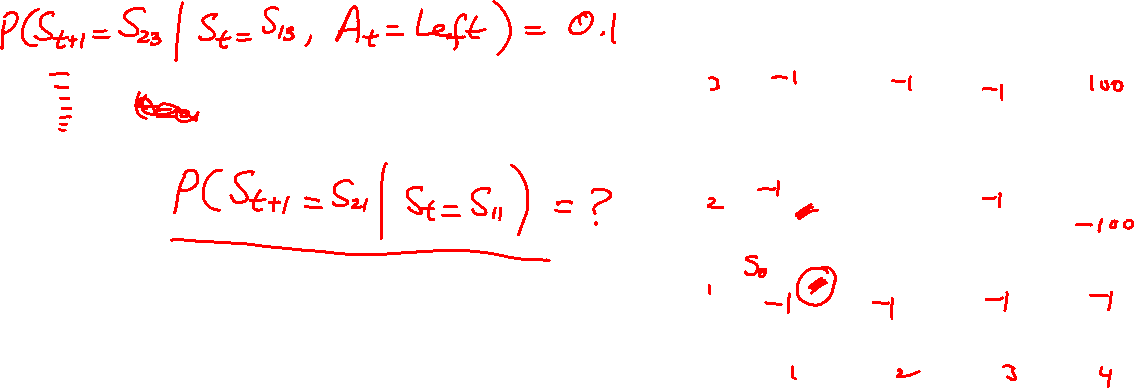 P(St+1 = S23 | St = S13, At = Left) = 0.1
P(St+1 = S21 | St = S11) = ?
3 -1 -1 -1 100
2 -1 -1 -100
S0
1 -1 -1 -1 -1
1 2 3 4